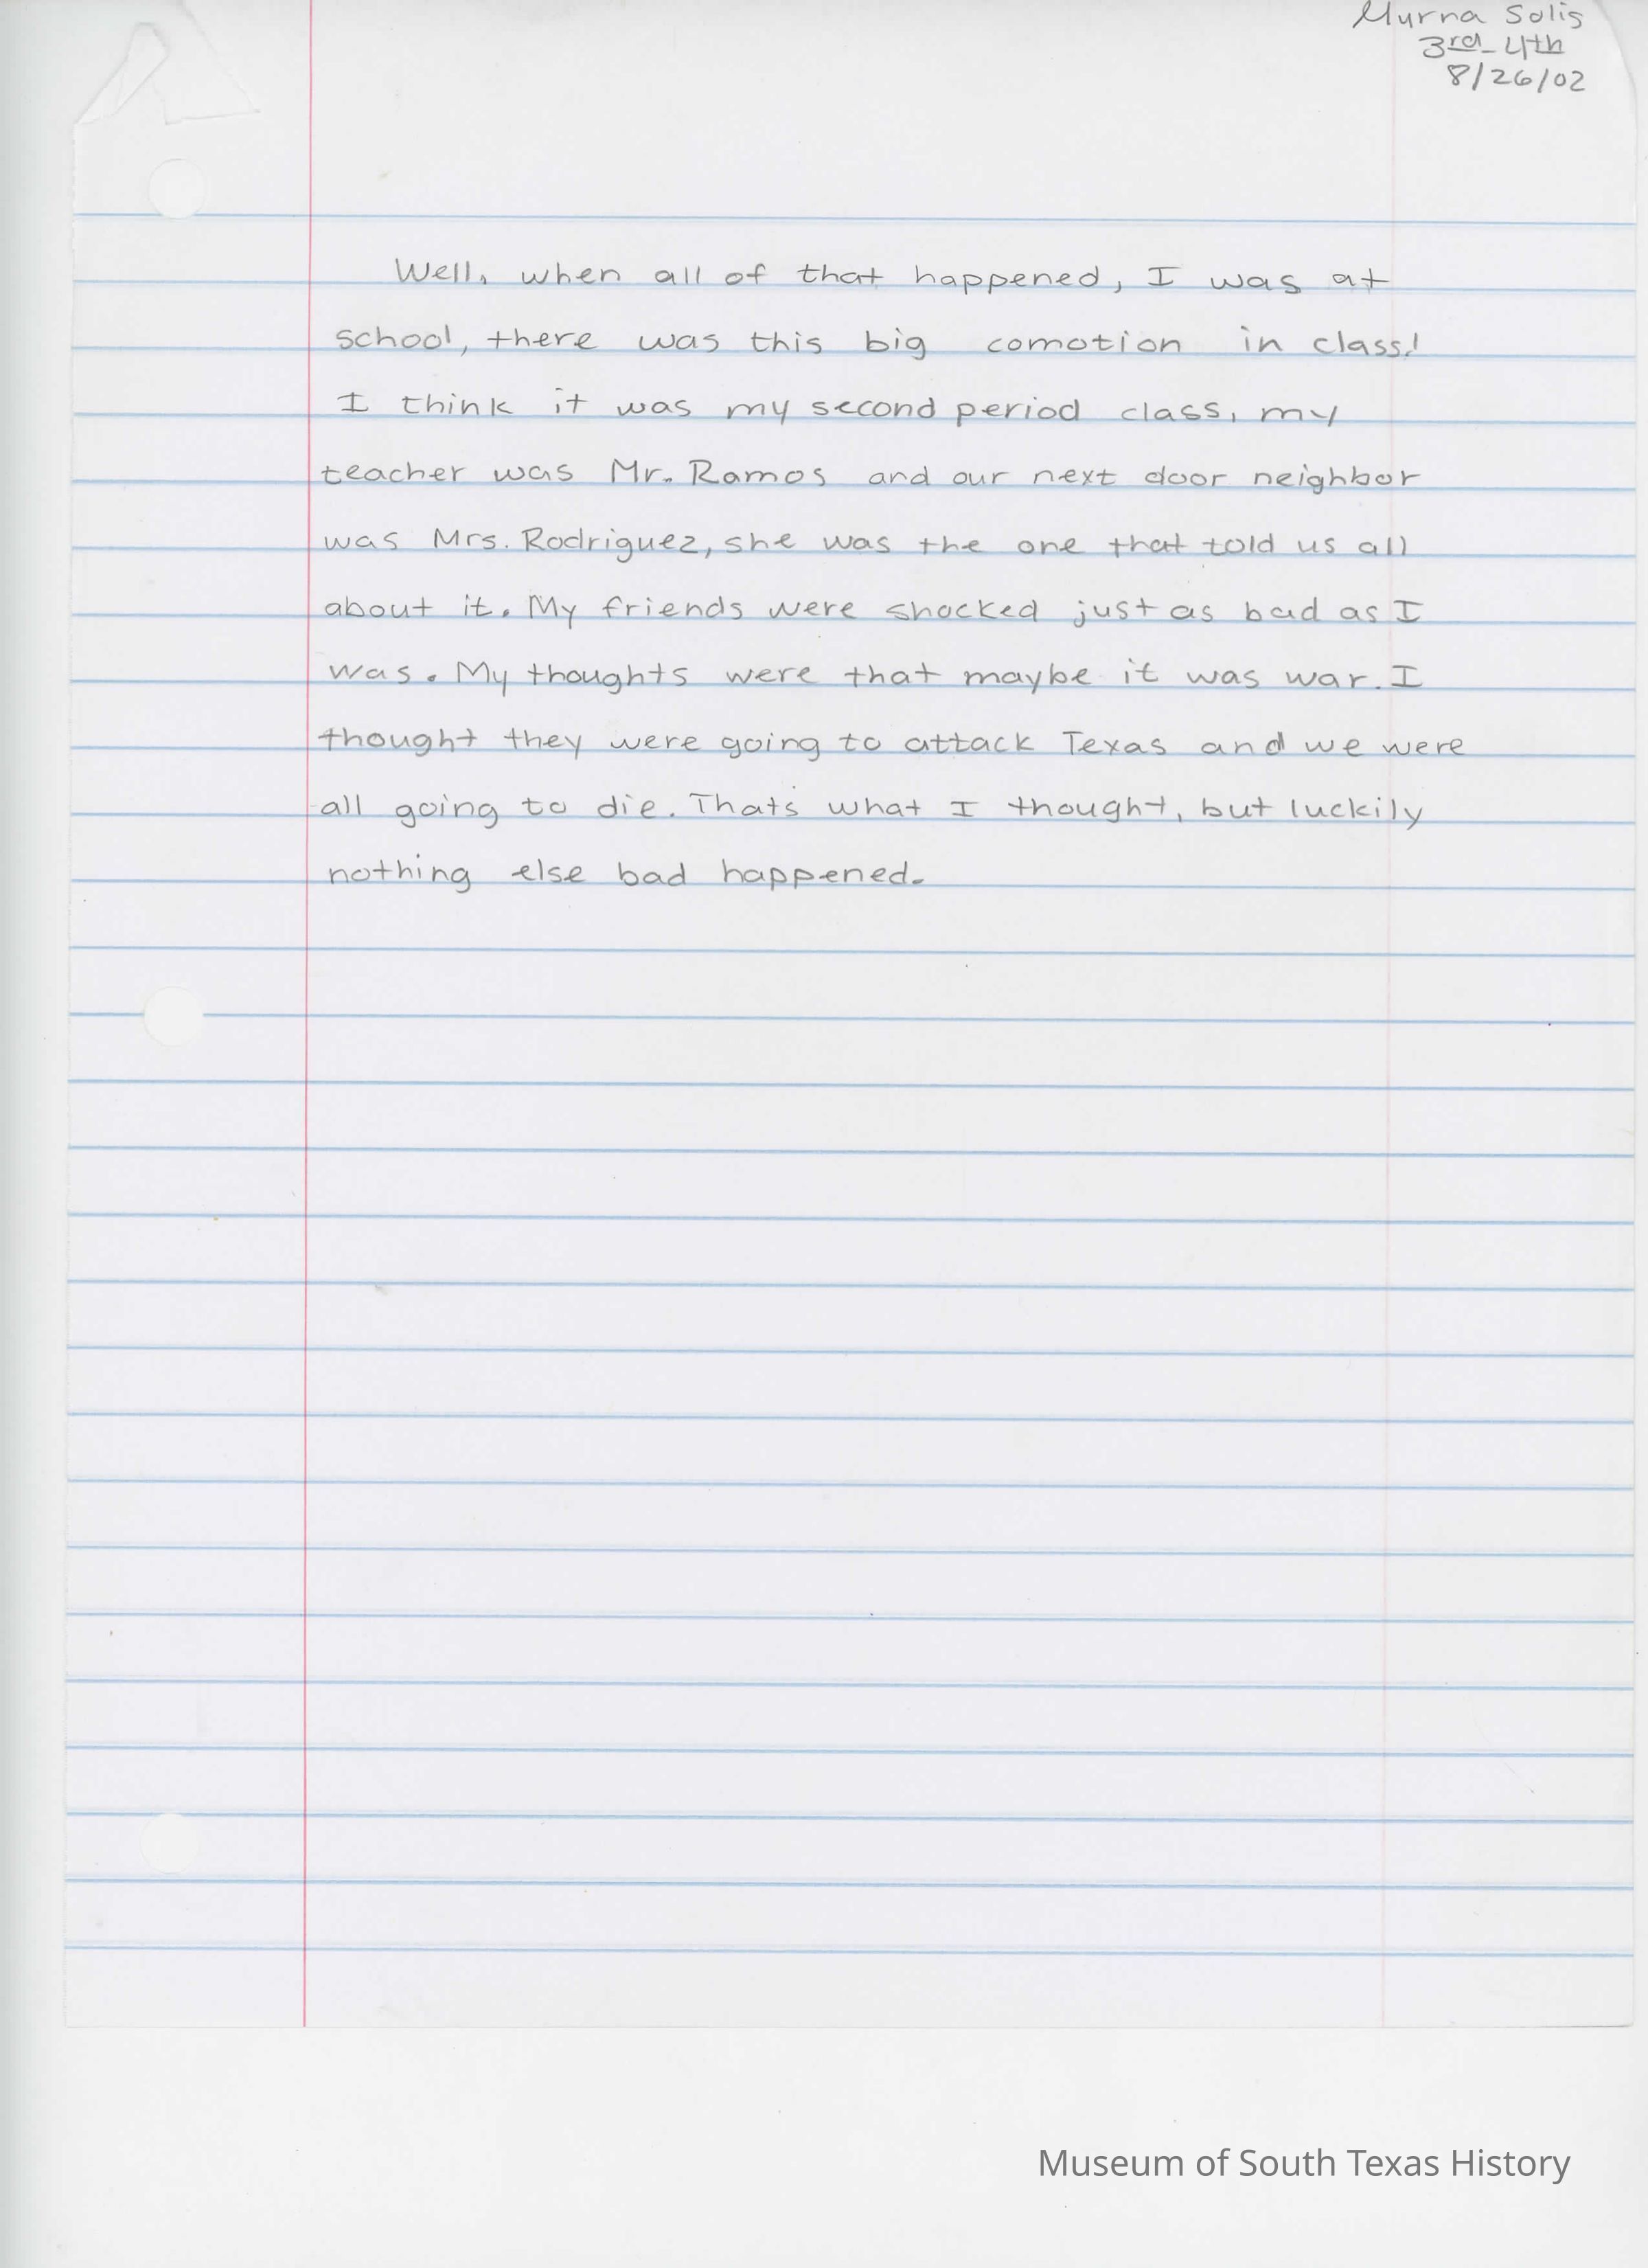 Myrna Solis
3rd-4th
8/26/02
Well, when all of that happened, I was at
school, there was this big comotion in class!
I think it was my second period class, my
teacher was Mr. Ramos and our next door neighbor
was Mrs. Rodriguez, she was the one that told us all
about it. My friends were shocked just as bad as I
was. My thoughts were that maybe it was war. I
thought they were going to attack Texas and we were
all going to die. Thats what I thought, but luckily
nothing else bad happened.
Museum of South Texas History